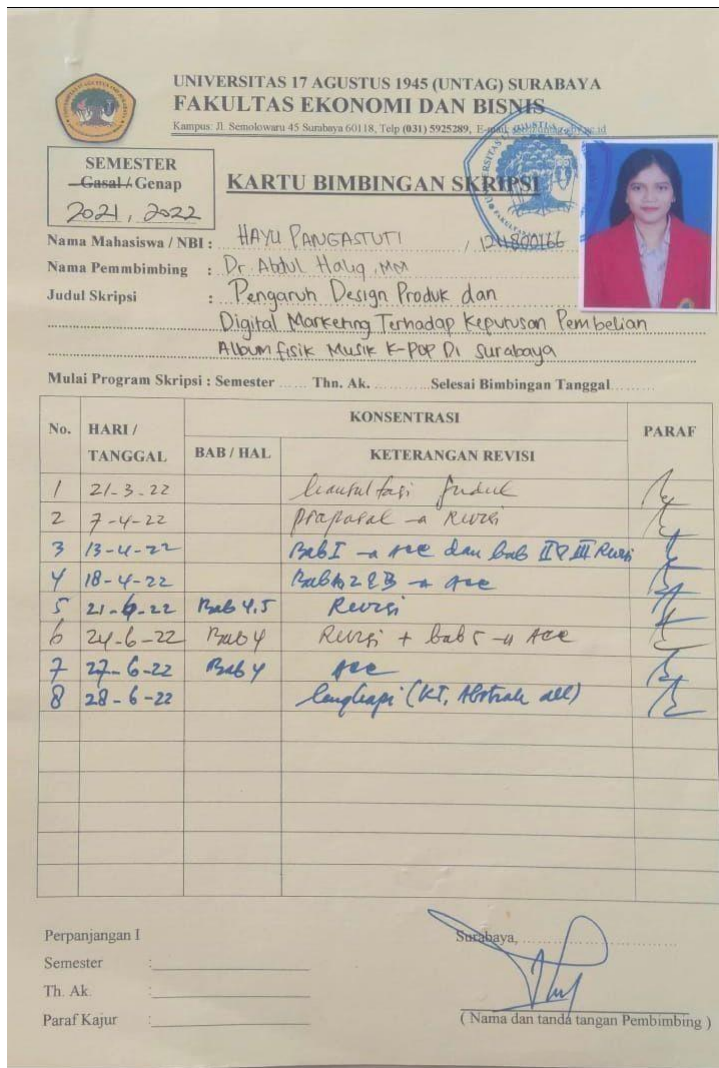 UNIVERSITAS 17 AGUSTUS 1945 (UNTAG) SURABAYA
FAKULTAS EKONOMI DAN BISNIS
Kampus: Jl. Semolowaru 45 Surabaya 60118, Telp (031) 5925289,
SEMESTER
Gasal / Genap
2021, 2022
KARTU BIMBINGAN SKRIPSI
Nama Mahasiswa / NBI : HAYU PANGASTUTI / 124800166
Nama Pemmbimbing : Dr. Abdul Haliq, MM
Judul Skripsi : Pengaruh Design Produk dan
Digital Marketing Terhadap Keputusan Pembelian
Album fisik Musik K-POP Di Surabaya
Mulai Program Skripsi : Semester ...... Thn. Ak. ............ Selesai Bimbingan Tanggal.........
No. HARI / TANGGAL KONSENTRASI PARAF
BAB / HAL KETERANGAN REVISI
1 21-3-22 Konsultasi Judul
2 7-4-22 Proposal → Revisi
3 13-4-22 Bab I → Acc dan bab II & III Revisi
4 18-4-22 Bab 2 & 3 → Acc
5 21-6-22 Bab 4,5 Revisi
6 24-6-22 Bab 4 Revisi + bab 5 → Acc
7 27-6-22 Bab 4 Acc
8 28-6-22 lengkapi (KT, Abstrak all)
Perpanjangan I
Surabaya, ....................................
Semester :
Th. Ak. :
Paraf Kajur :
( Nama dan tanda tangan Pembimbing )